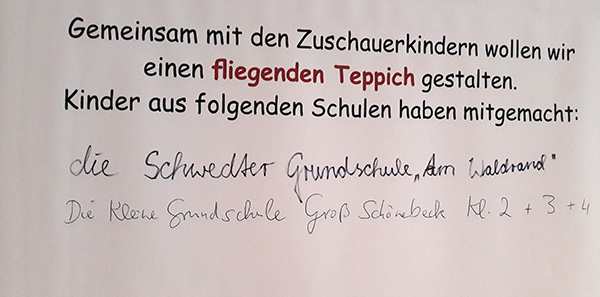 Gemeinsam mit den Zuschauerkindern wollen wir
einen fliegenden Teppich gestalten.
Kinder aus folgenden Schulen haben mitgemacht:
die Schwedter Grundschule „Am Waldrand"
Die Kleine Grundschule Groß Schönebeck Kl. 2 + 3 + 4